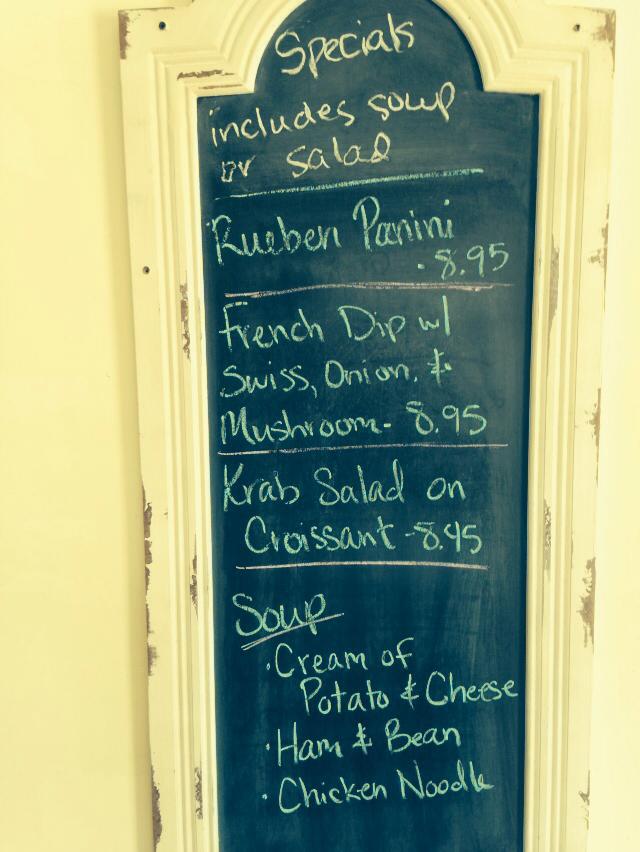 Specials
includes soup
or salad
Rueben Panini
. 8.95
French Dip w/
Swiss, Onion, &
Mushroom- 8.95
Krab Salad on
Croissant -8.95
Soup
· Cream of
Potato & Cheese
· Ham & Bean
· Chicken Noodle